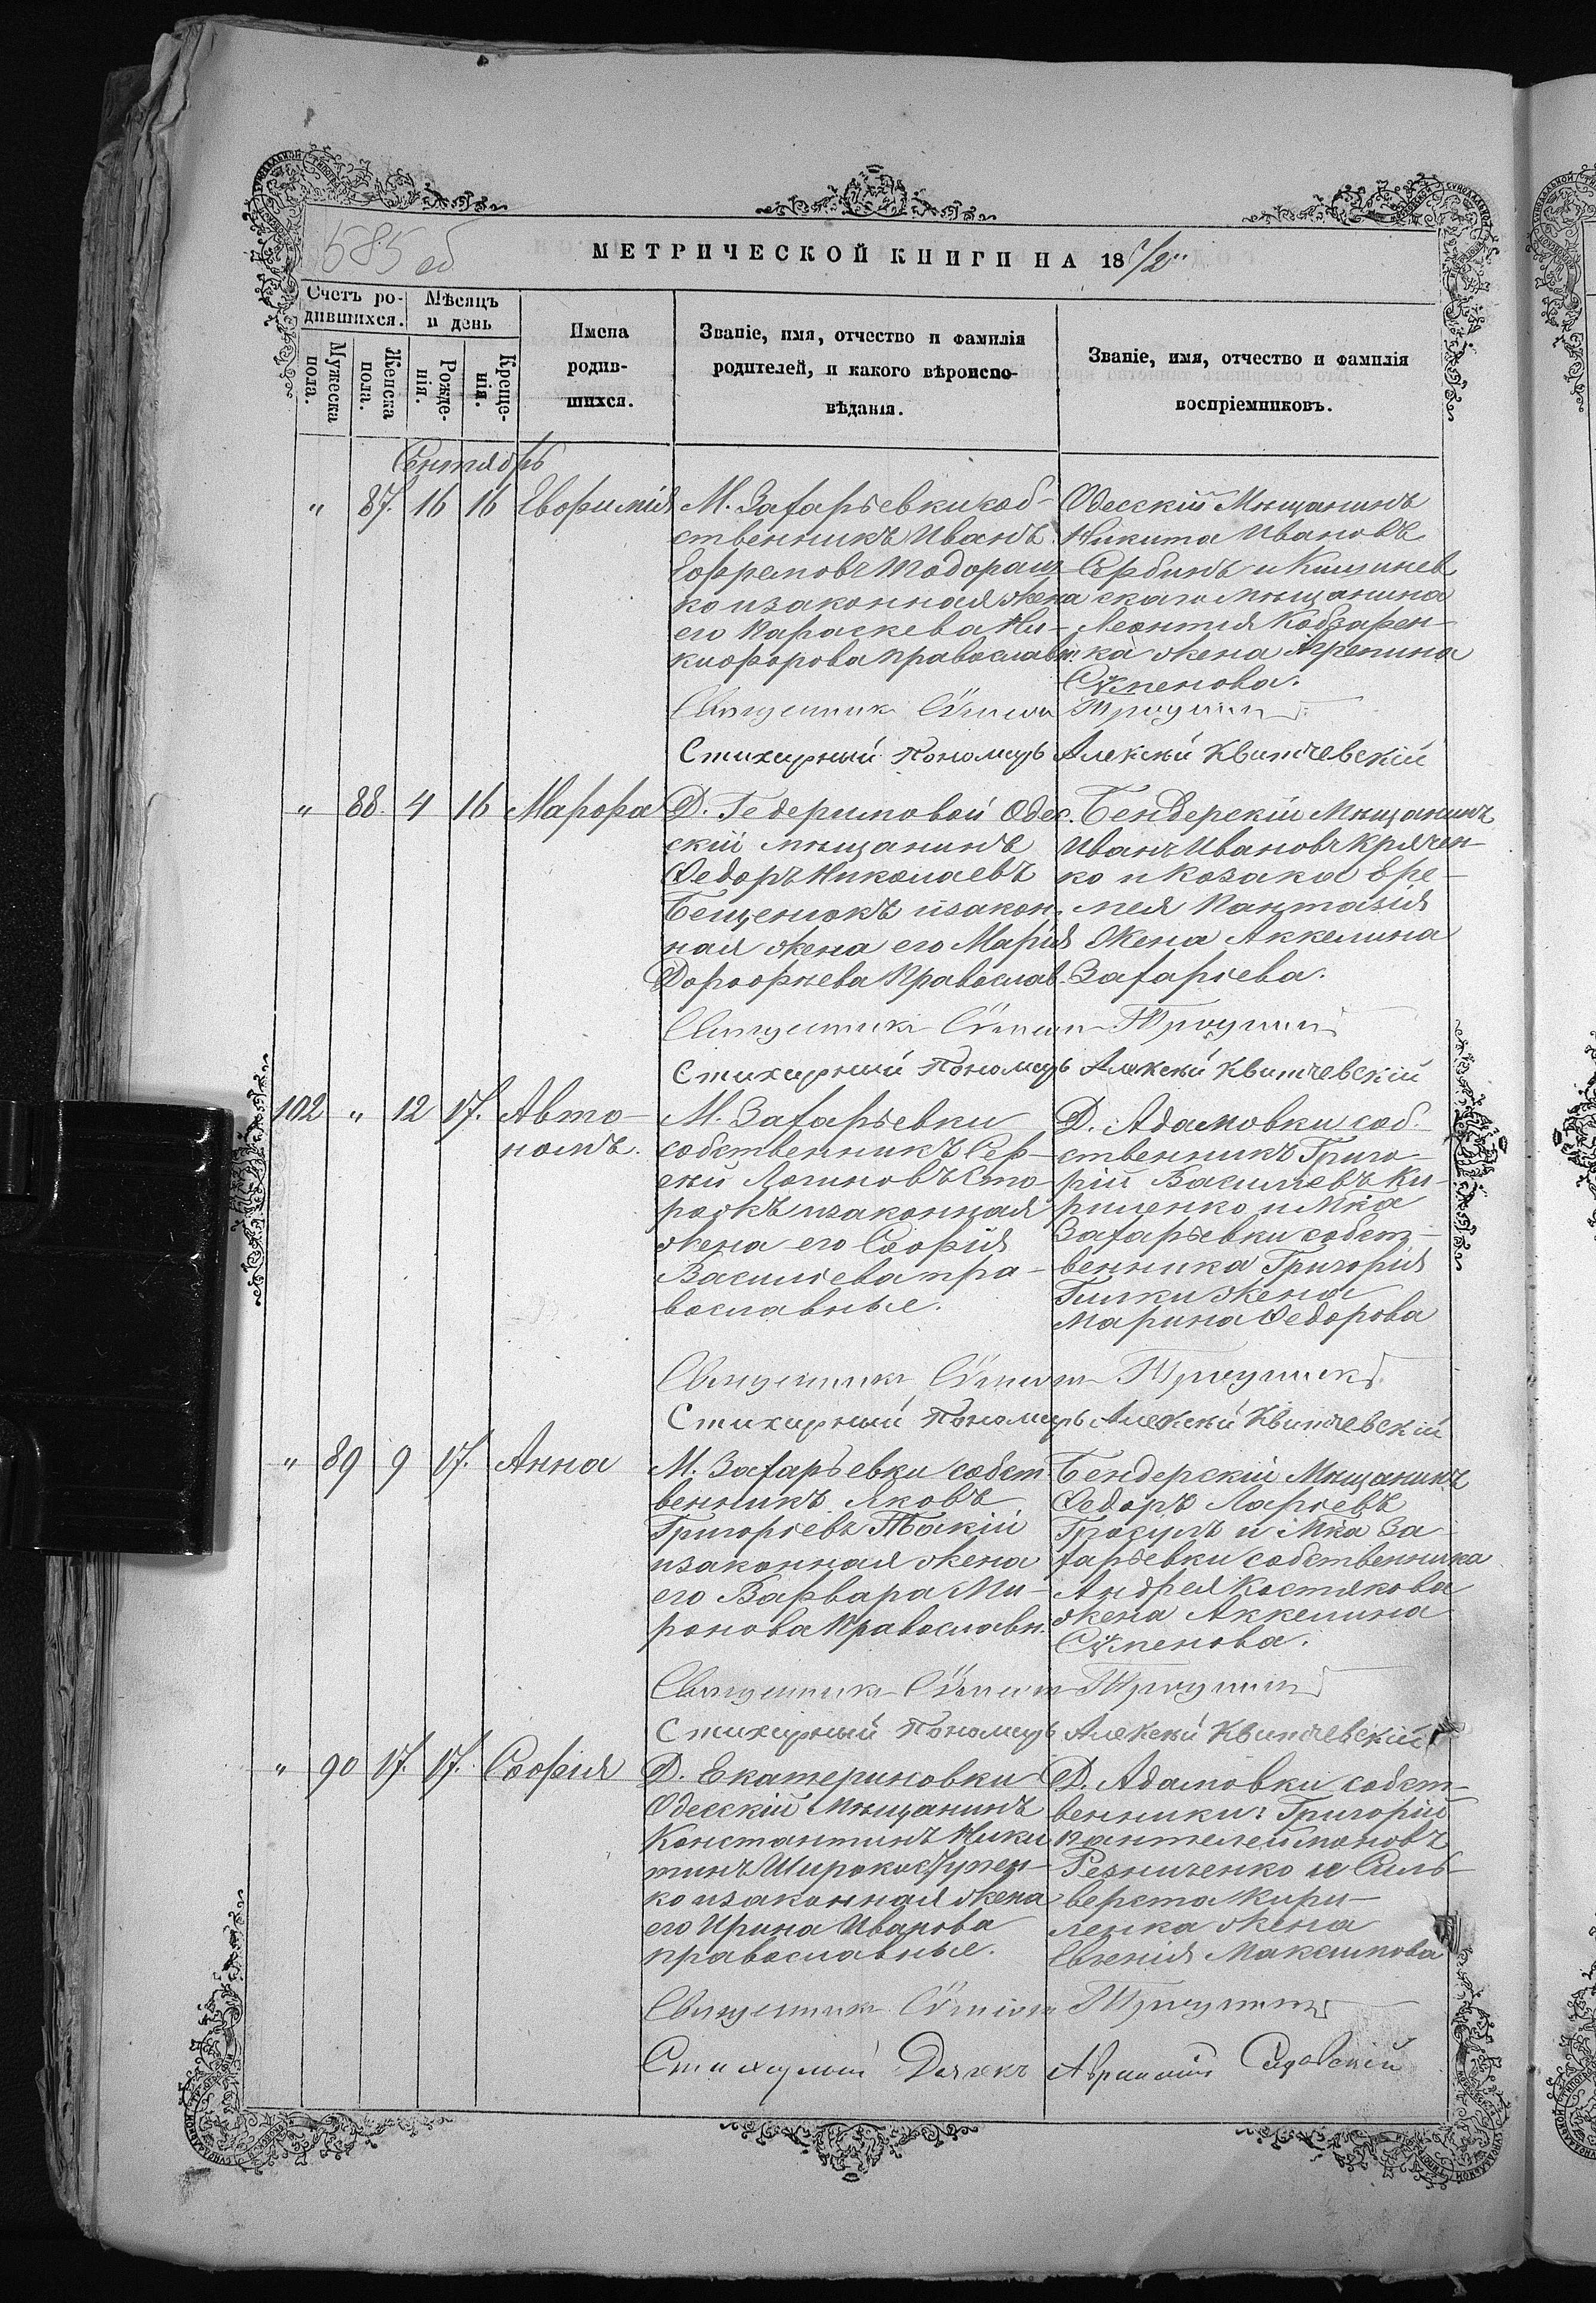 585 об
МЕТРИЧЕСКОЙ КНИГИ НА 18
Счетъ ро-
дившихся.
Мѣсяцъ
и день
Мужеска
пола.
Женска
пола.
Рожде-
нія.
Креще-
нія.
Имена
родив-
шихся.
Званіе, имя, отчество и фамилія
родителей, и какого вѣроиспо-
вѣданія.
Званіе, имя, отчество и фамилія
воспріемниковъ.
Сентябрь
" 87. 16 16 Евфимія
М. Захарьевки соб-
ственникъ Иванъ
Ефремовъ Тодораш-
ко и законная жена
его Параскева Ни-
кифорова православн.
Одесскій Мѣщанинъ
Никита Ивановъ
Сербинъ и Кишинев
скаго мѣщанина
Леонтія Кобзарен-
ка жена Агрепина
Стѣпенова.
Священникъ
Стихарный Пономарь Алексѣй Квитчевскій
" 88. 4 16 Марфа
Д. Гедеримовой Одес.
скій мѣщанинъ
Федоръ Николаевъ
Бещенюкъ и закон-
ная жена его Марія
Дорофѣева Православ.
Бендерскій Мѣщанинъ
Иванъ Ивановъ Крячен-
ко и Козака Ере-
мея Пантазія
Жена Аккелина
Захарьева.
Священникъ
Стихарный Пономарь Алексѣй Квитчевскій
102 " 12 17. Авто-
номъ.
М. Захарьевки
собственникъ Сер-
гѣй Логиновъ Сто-
рожъ и законная
жена его Софія
Васильева пра-
вославные.
Д. Адамовки соб.
ственникъ Григо-
рій Васильевъ Ки-
риленко и Мка
Захарьевки собст-
венника Григорія
Гилки жена
Марина Федорова
Священникъ
Стихарный Пономарь Алексѣй Квитчевскій
" 89 9 17. Анна
М. Захарьевки собст
венникъ Яковъ
Григорьевъ Токій
и законная жена
его Варвара Ми-
ронова Православн.
Бендерскій Мѣщанинъ
Федоръ Ларіевъ
Гросулъ и Мка За-
харьевки собственника
Андрея Костякова
жена Аккелина
Стѣпенова.
Священникъ
Стихарный Пономарь Алексѣй Квитчевскій
" 90 17. 17. Софія
Д. Екатериновки
Одесскій Мѣщанинъ
Константинъ Ники
тинъ
ко и законная жена
его Ирина Иванова
православные.
Д. Адамовки собст-
венники: Григорій
Пантелеймоновъ
Резниченко и Силь-
верста Кири-
ленка жена
Евгенія Максимова
Священникъ
Стихарный Дьячекъ